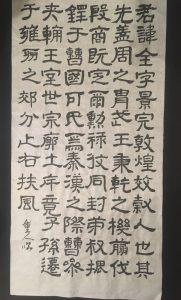 君諱全字景完敦煌效穀人也其
先蓋周之胄武王秉乾之機翦伐
殷商既定爾勳祿攸同封弟叔振
鐸于曹國因氏焉秦漢之際曹參
夾輔王室世宗廓土斥竟子孫遷
于雍州之郊分止右扶風